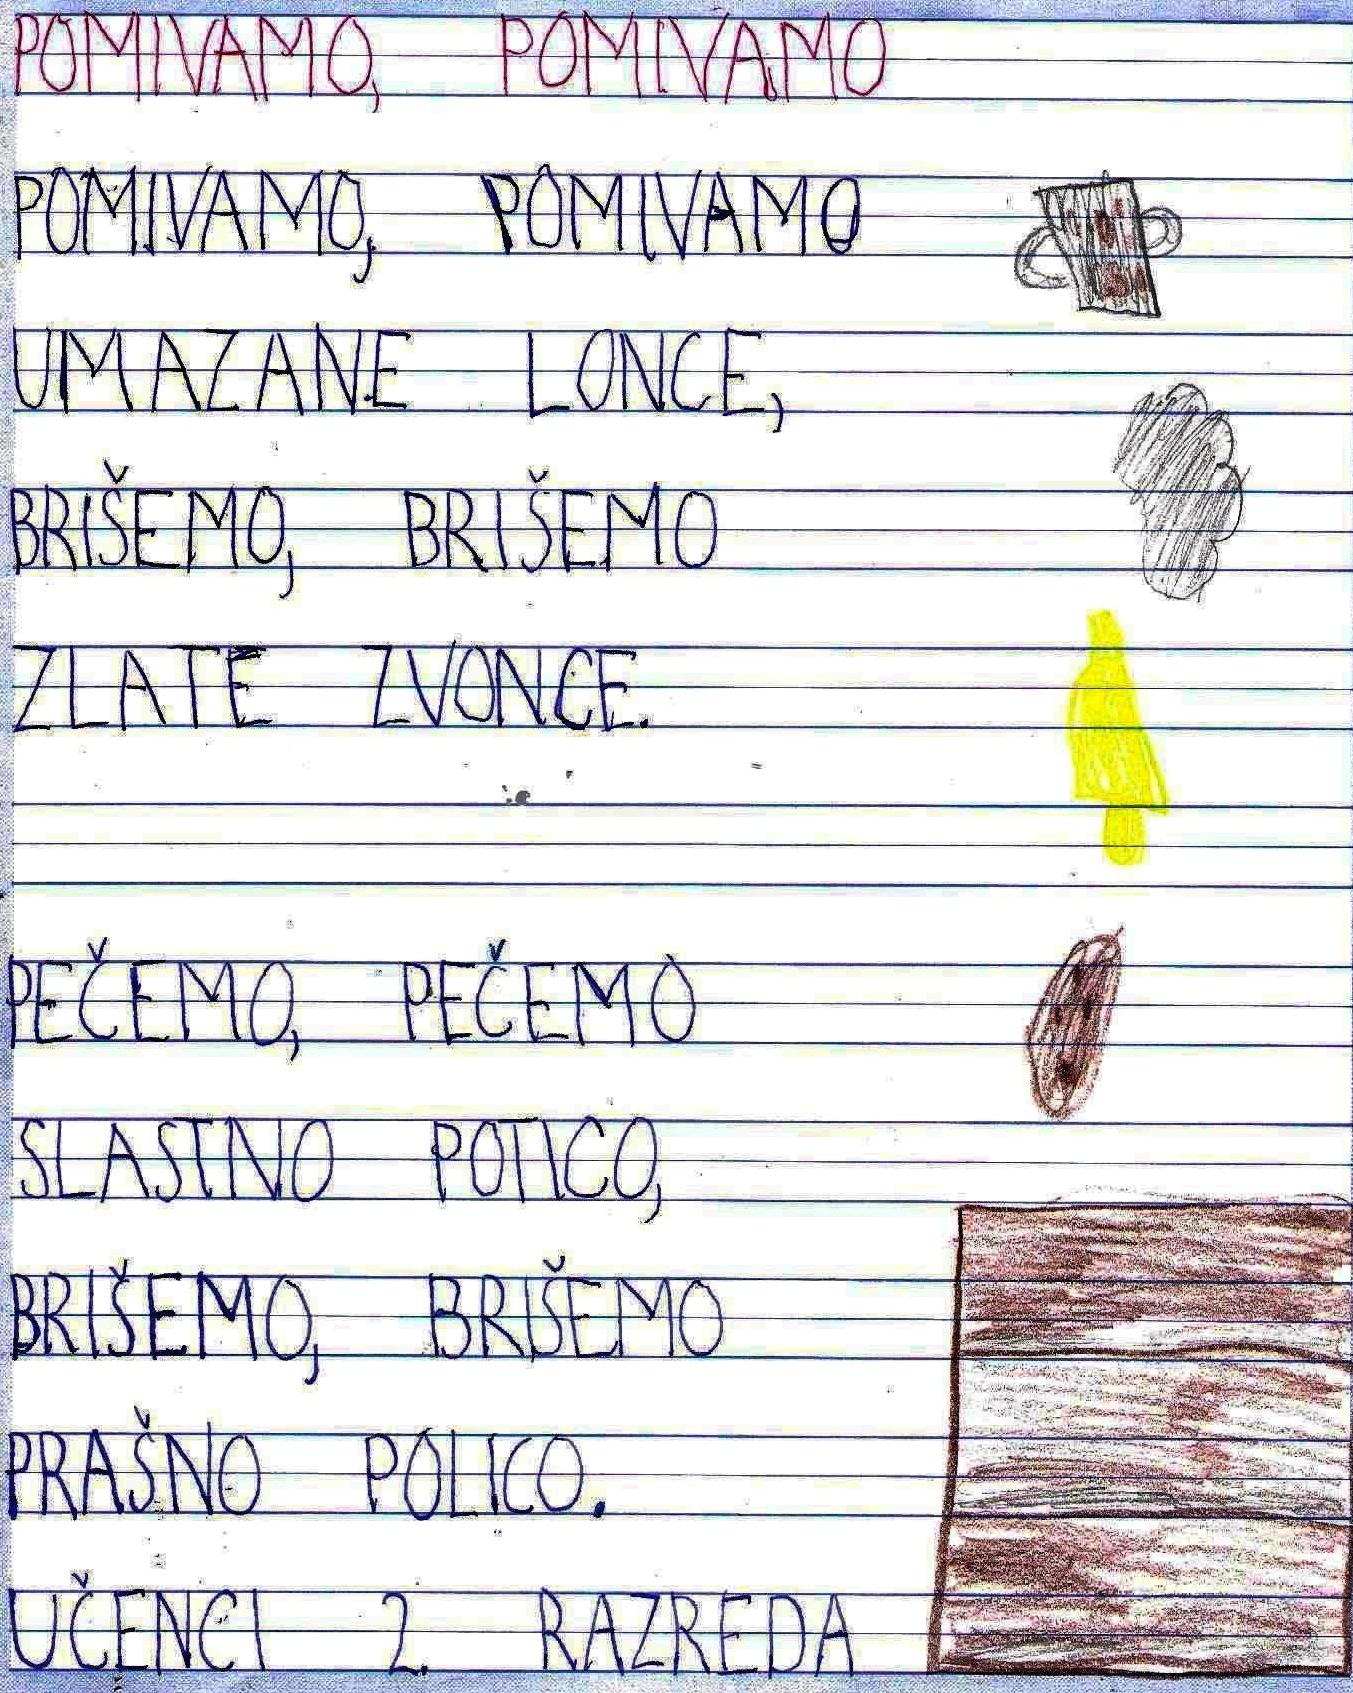 POMIVAMO, POMIVAMO
POMIVAMO, POMIVAMO
UMAZANE LONCE,
BRIŠEMO, BRIŠEMO
ZLATE ZVONCE.
PEČEMO, PEČEMO
SLASTNO POTICO,
BRIŠEMO, BRIŠEMO
PRAŠNO POLICO.
UČENCI 2. RAZREDA